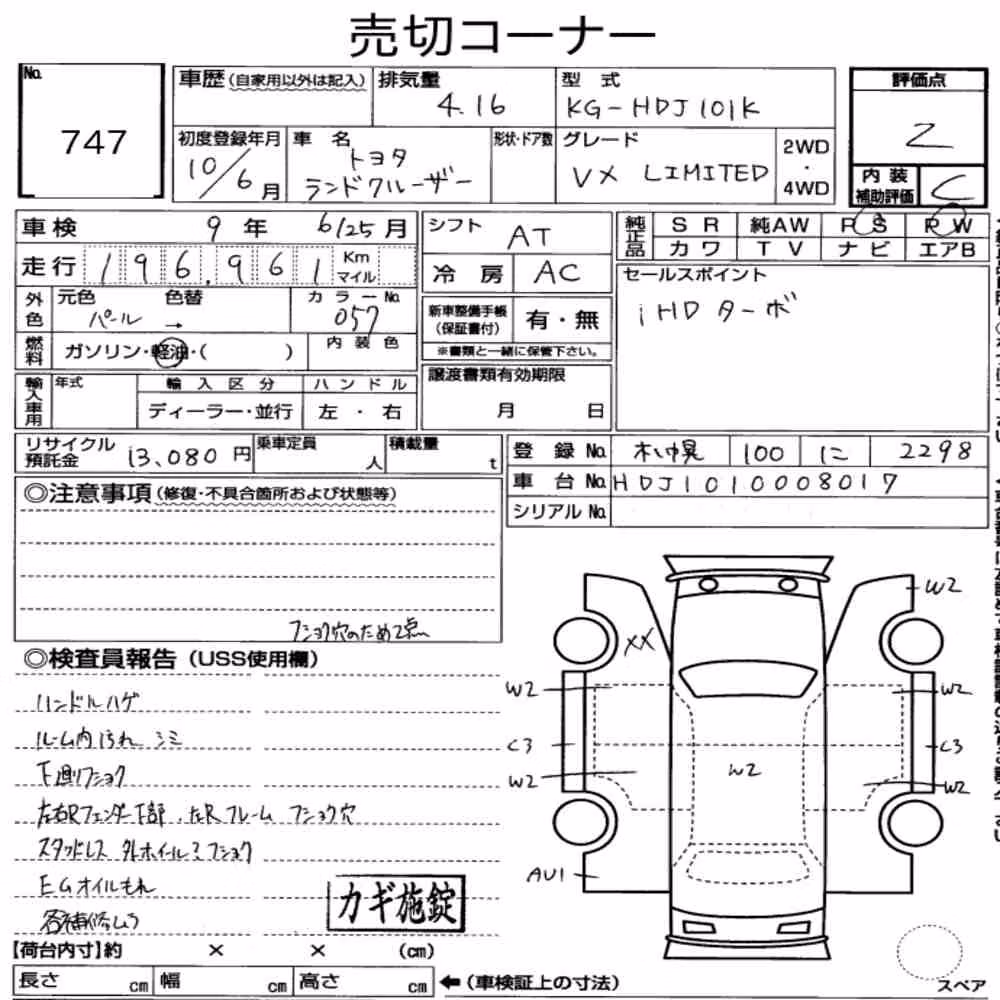 売切コーナー
No.
747
車歴 (自家用以外は記入)
排気量
4.16
型 式
KG-HDJ101K
評価点
2
内装
補助評価
C
初度登録年月
10/6月
車 名
トヨタ
ランドクルーザー
形状・ドア数
グレード
VX LIMITED
2WD
・
4WD
車検
9年 6/25月
走行
196,961
Km
マイル
外色
元色
パール
色替
→
カラーNo.
057
燃料
ガソリン・軽油・( )
内装色
輸入車用
年式
輸入区分
ディーラー・並行
ハンドル
左・右
シフト
AT
冷房
AC
新車整備手帳
(保証書付)
有・無
※書類と一緒に保管下さい。
譲渡書類有効期限
月 日
純正品
SR
純AW
PS
PW
カワ
TV
ナビ
エアB
セールスポイント
1HDターボ
リサイクル
預託金
13,080円
乗車定員
人
積載量
t
登録No.
札幌
100
に
2298
車台No.
HDJ1010008017
シリアルNo.
◎注意事項 (修復・不具合箇所および状態等)
フショク穴のため2点
◎検査員報告 (USS使用欄)
ハンドルハゲ
ルーム内汚れ シミ
下廻りフショク
左右Rフェンダー下部、左Rフレーム フショク穴
スタッドレス 外ホイールミフショク
EGオイルもれ
各補修ムラ
カギ施錠
【荷台内寸】約 × × (cm)
長さ cm 幅 cm 高さ cm
←(車検証上の寸法)
W2
XX
W2
W2
C3
C3
W2
W2
W2
AU1
スペア